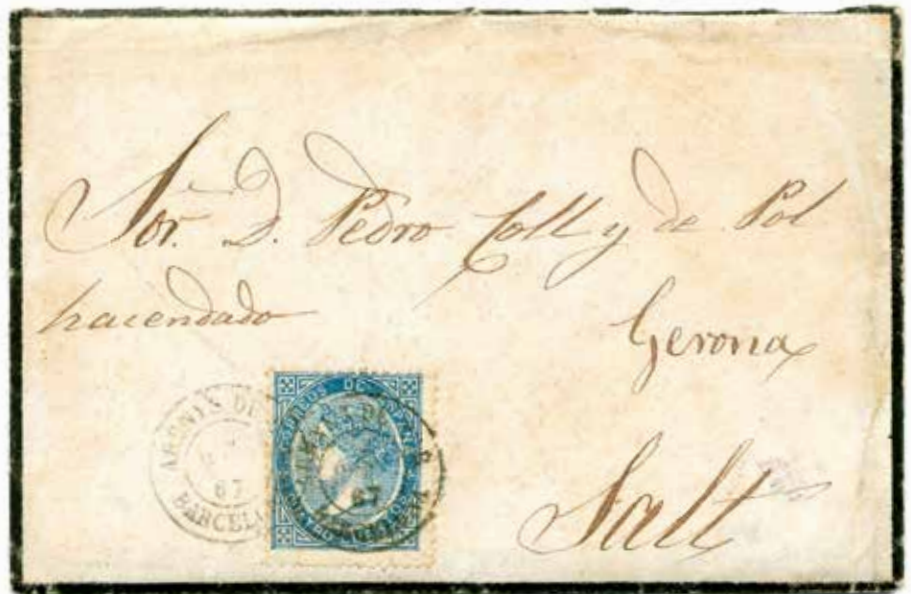 Sor. D. Pedro Coll y de Pol
hacendado
Gerona
Salt
ARENYS DE
67
BARCEL
CORREOS DE ESPAÑA
67